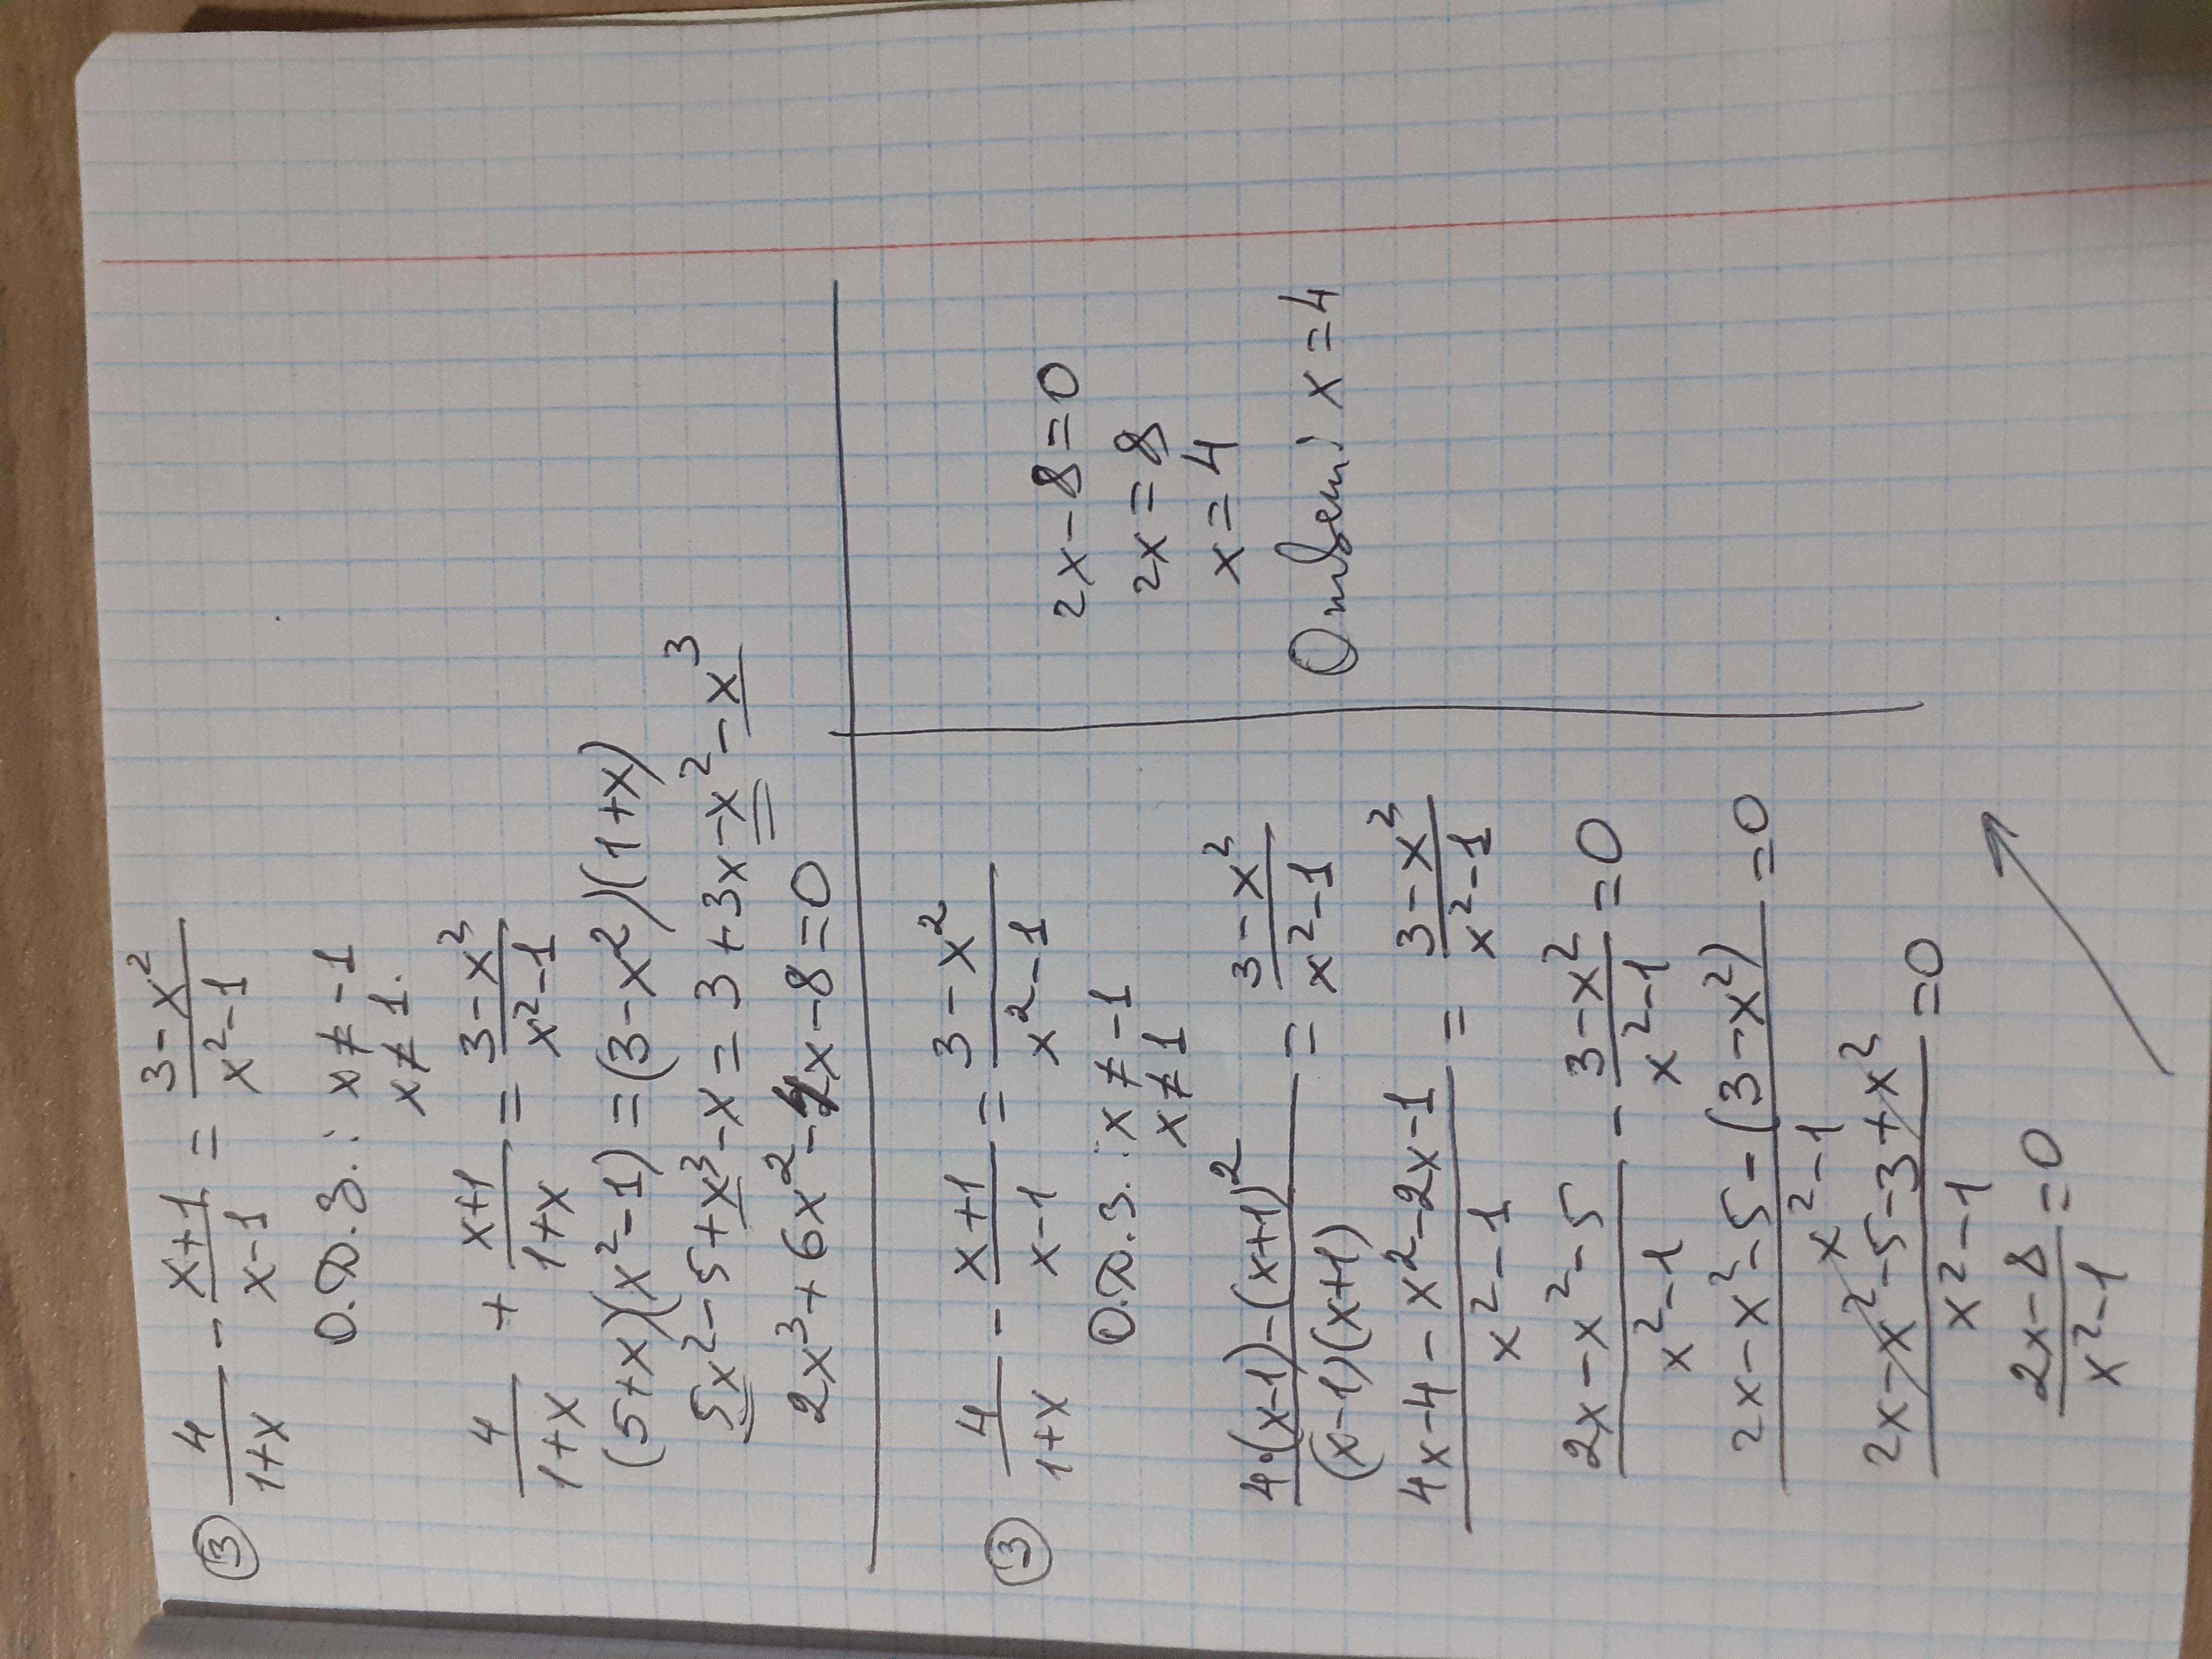 ③ 4/(1+x) - (x+1)/(x-1) = (3-x²)/(x²-1)
О.Д.З.: x≠-1
x≠1.
4/(1+x) + (x+1)/(1+x) = (3-x²)/(x²-1)
(5+x)(x²-1)=(3-x²)(1+x)
5x²-5+x³-x=3+3x-x²-x³
2x³+6x²-4x-8=0
③ 4/(1+x) - (x+1)/(x-1) = (3-x²)/(x²-1)
О.Д.З.: x≠-1
x≠1
(4·(x-1)-(x+1)²)/((x-1)(x+1)) = (3-x²)/(x²-1)
(4x-4-x²-2x-1)/(x²-1) = (3-x²)/(x²-1)
(2x-x²-5)/(x²-1) - (3-x²)/(x²-1) =0
(2x-x²-5-(3-x²))/(x²-1) =0
(2x-x²-5-3+x²)/(x²-1) =0
(2x-8)/(x²-1) =0
2x-8=0
2x=8
x=4
Ответ: x=4